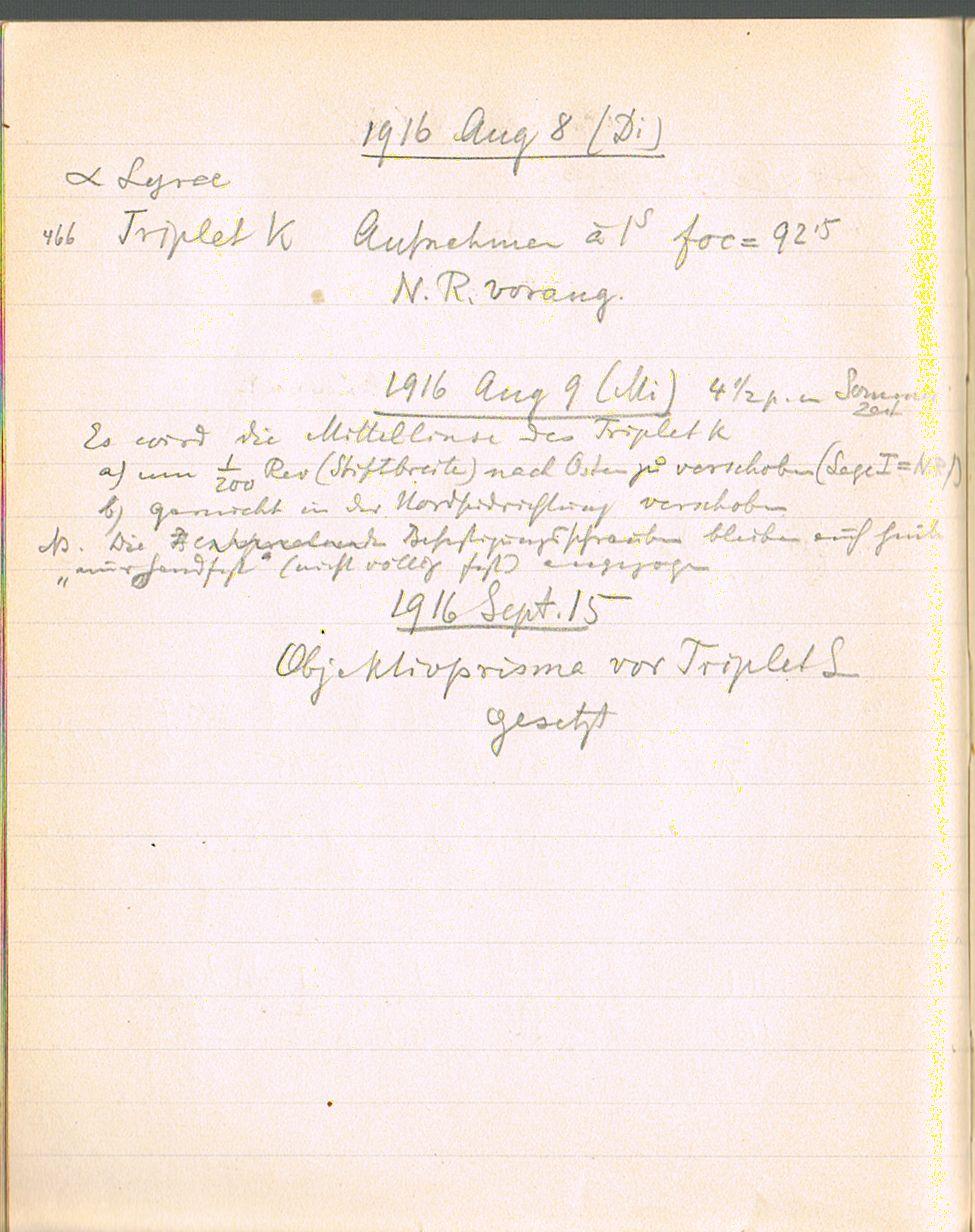 1916 Aug 8 (Di)
α Lyrae
466 Triplet K Aufnahmen à 1ˢ foc = 92,5
N. R. vorang.
1916 Aug 9 (Mi) 4 1/2 p. m Sommer
zeit
Es wird die Mittellinse des Triplet K
a) um 1/200 Rev (Stiftbreite) nach Osten zu verschoben (Lage I = N.R.!)
b) garnicht in der Nordsüdrichtung verschoben
NB. Die Befestigungsschrauben bleiben auch heute
„nur handfest“ (nicht völlig fest) angezogen
1916 Sept. 15
Objektivprisma vor Triplet L
gesetzt